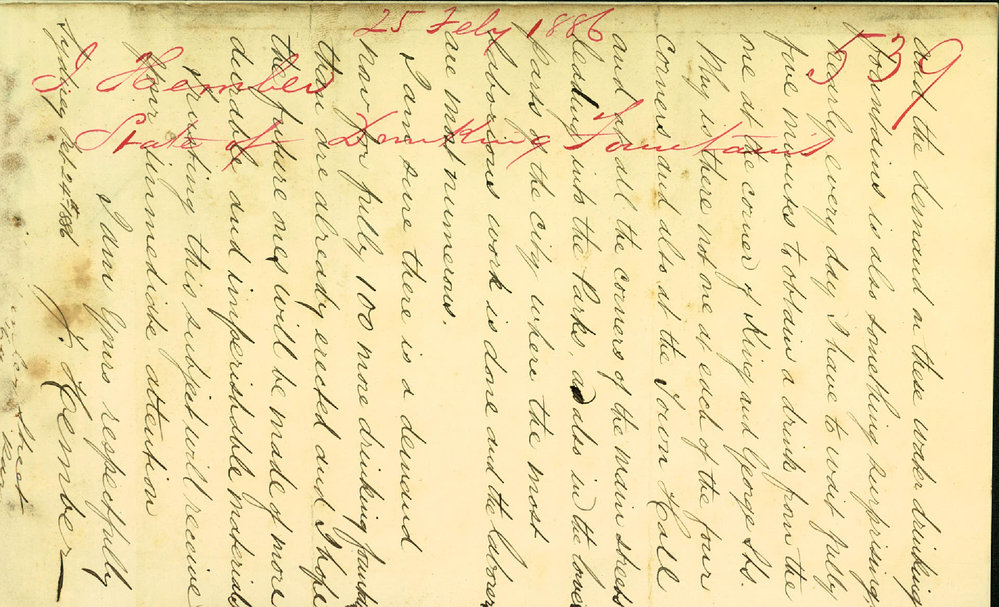 25 Feby 1886
539
J Hember
State of Drinking Fountains
and the demand on these water drinking
fountains is also something surprising,
nearly every day I have to wait fully
five minutes to obtain a drink from the
one at the corner of King and George Sts.
Why is there not one at each of the four
corners and also at the Town Hall
and at all the corners of the main streets
leading into the Parks, and also in the lower
parts of the city where the most
laborious work is done and the laborers
are most numerous.
I am sure there is a demand
now for fully 100 more drinking fountains
than are already erected and I hope
the future ones will be made of more
durable and imperishable material
trusting this subject will receive
your immediate attention
I am yours respectfully
J. Hember
Sydney Feb 24th 1886